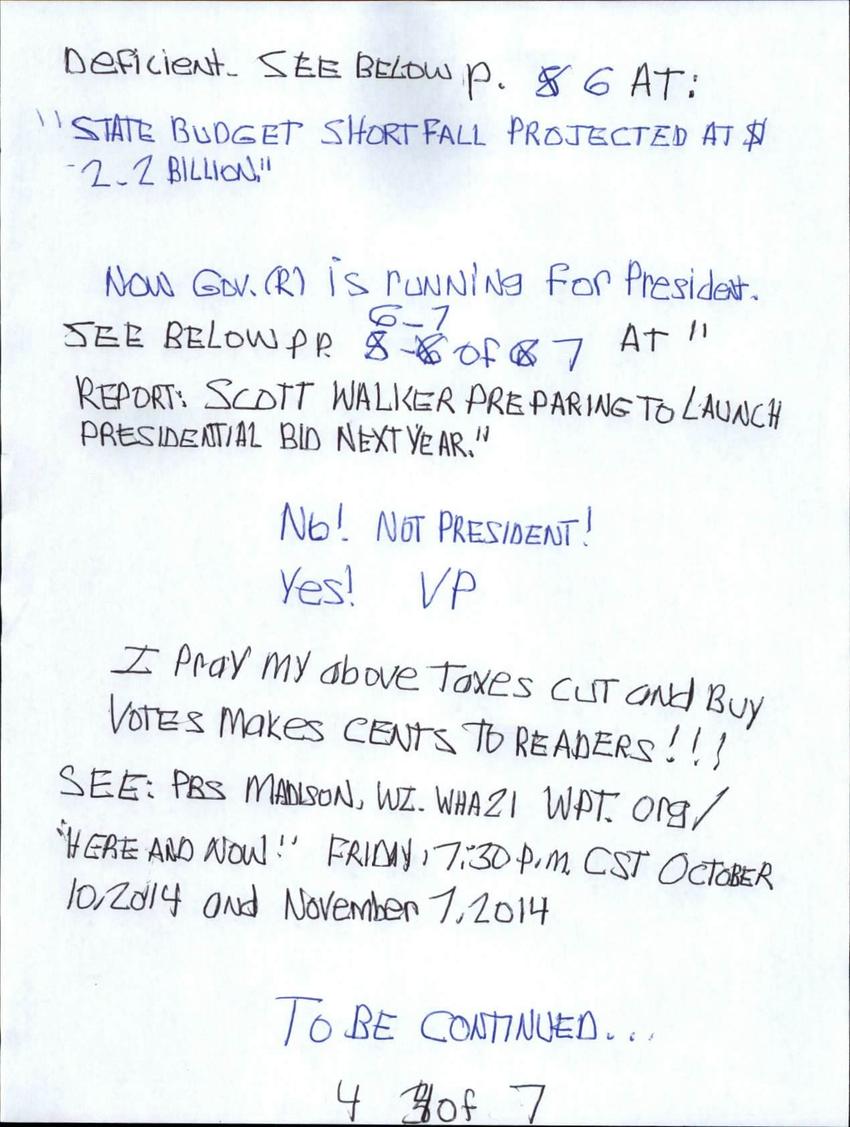 Deficient. SEE BELOW p. 6 AT:
"STATE BUDGET SHORTFALL PROJECTED AT $
-2.2 BILLION."
NOW GOV. (R) is running For President.
6-7
SEE BELOW PP. of 7 AT "
REPORT: SCOTT WALKER PREPARING TO LAUNCH
PRESIDENTIAL BID NEXT YEAR."
No! NOT PRESIDENT!
Yes! VP
I Pray my above Taxes CUT and Buy
VOTES Makes CENTS TO READERS!!!
SEE: PBS MADISON, WI. WHA21 WPT. Org/
"HERE AND NOW!" FRIDAY, 7:30 P.M. CST OCTOBER
10, 2014 and November 7, 2014
TO BE CONTINUED...
4 of 7